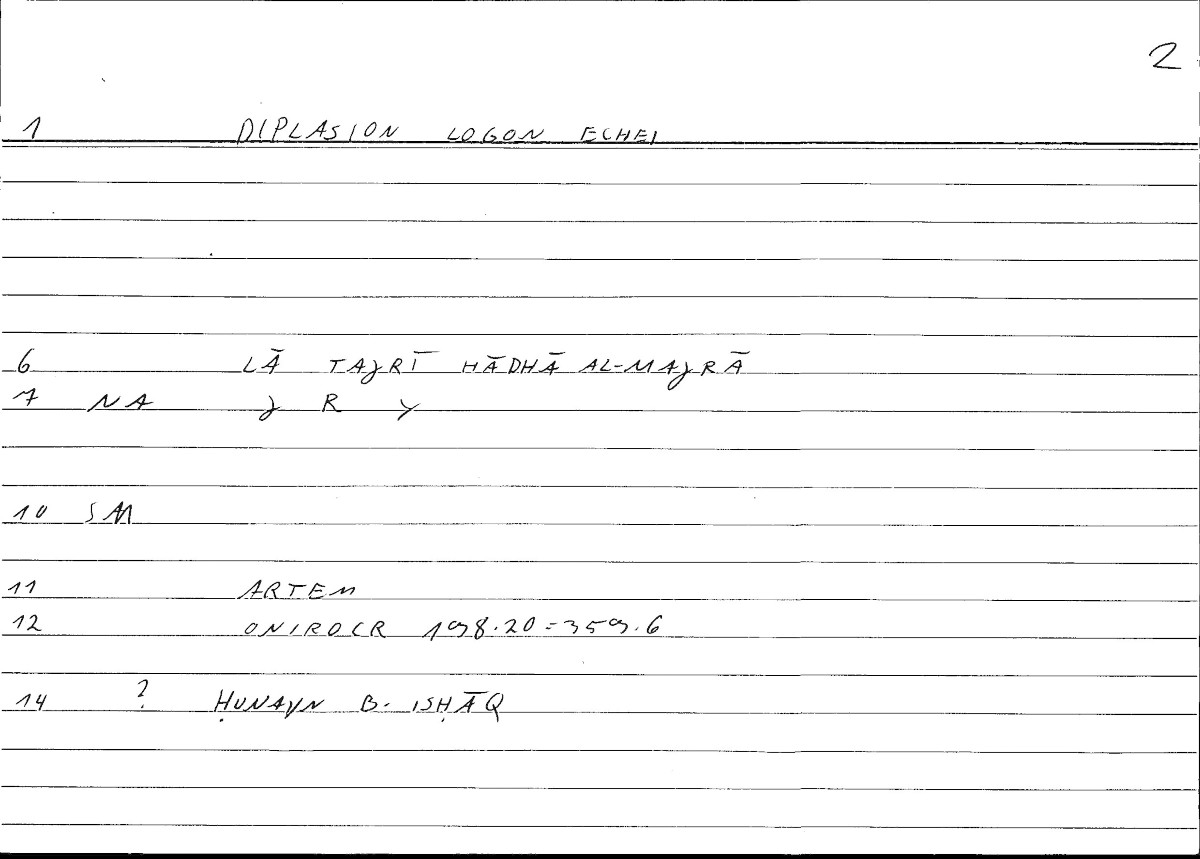 2
1 DIPLASION LOGON ECHEI
6 LĀ TAJRĪ HĀDHĀ AL-MAJRĀ
7 NA J R Y
10 SM
11 ARTEM
12 ONIROCR 198.20=359.6
14 ? ḤUNAYN B. ISḤĀQ